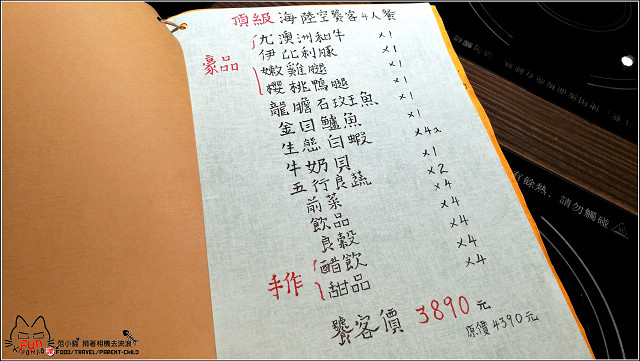 頂級海陸空饕客4人餐
豪品
九澳洲和牛 x1
伊比利豚 x1
嫩雞腿 x1
櫻桃鴨腿 x1
龍膽石斑魚 x1
金目鱸魚 x1
生態白蝦 x4a
牛奶貝 x1
五行良蔬 x2
前菜 x4
飲品 x4
良穀 x4
手作
醋飲 x4
甜品 x4
饕客價 3890元
原價4390元
有餘熱、請勿觸碰
FUN
范小錢 揹著相機去流浪
FOOD/TRAVEL/PARENT-CHILD